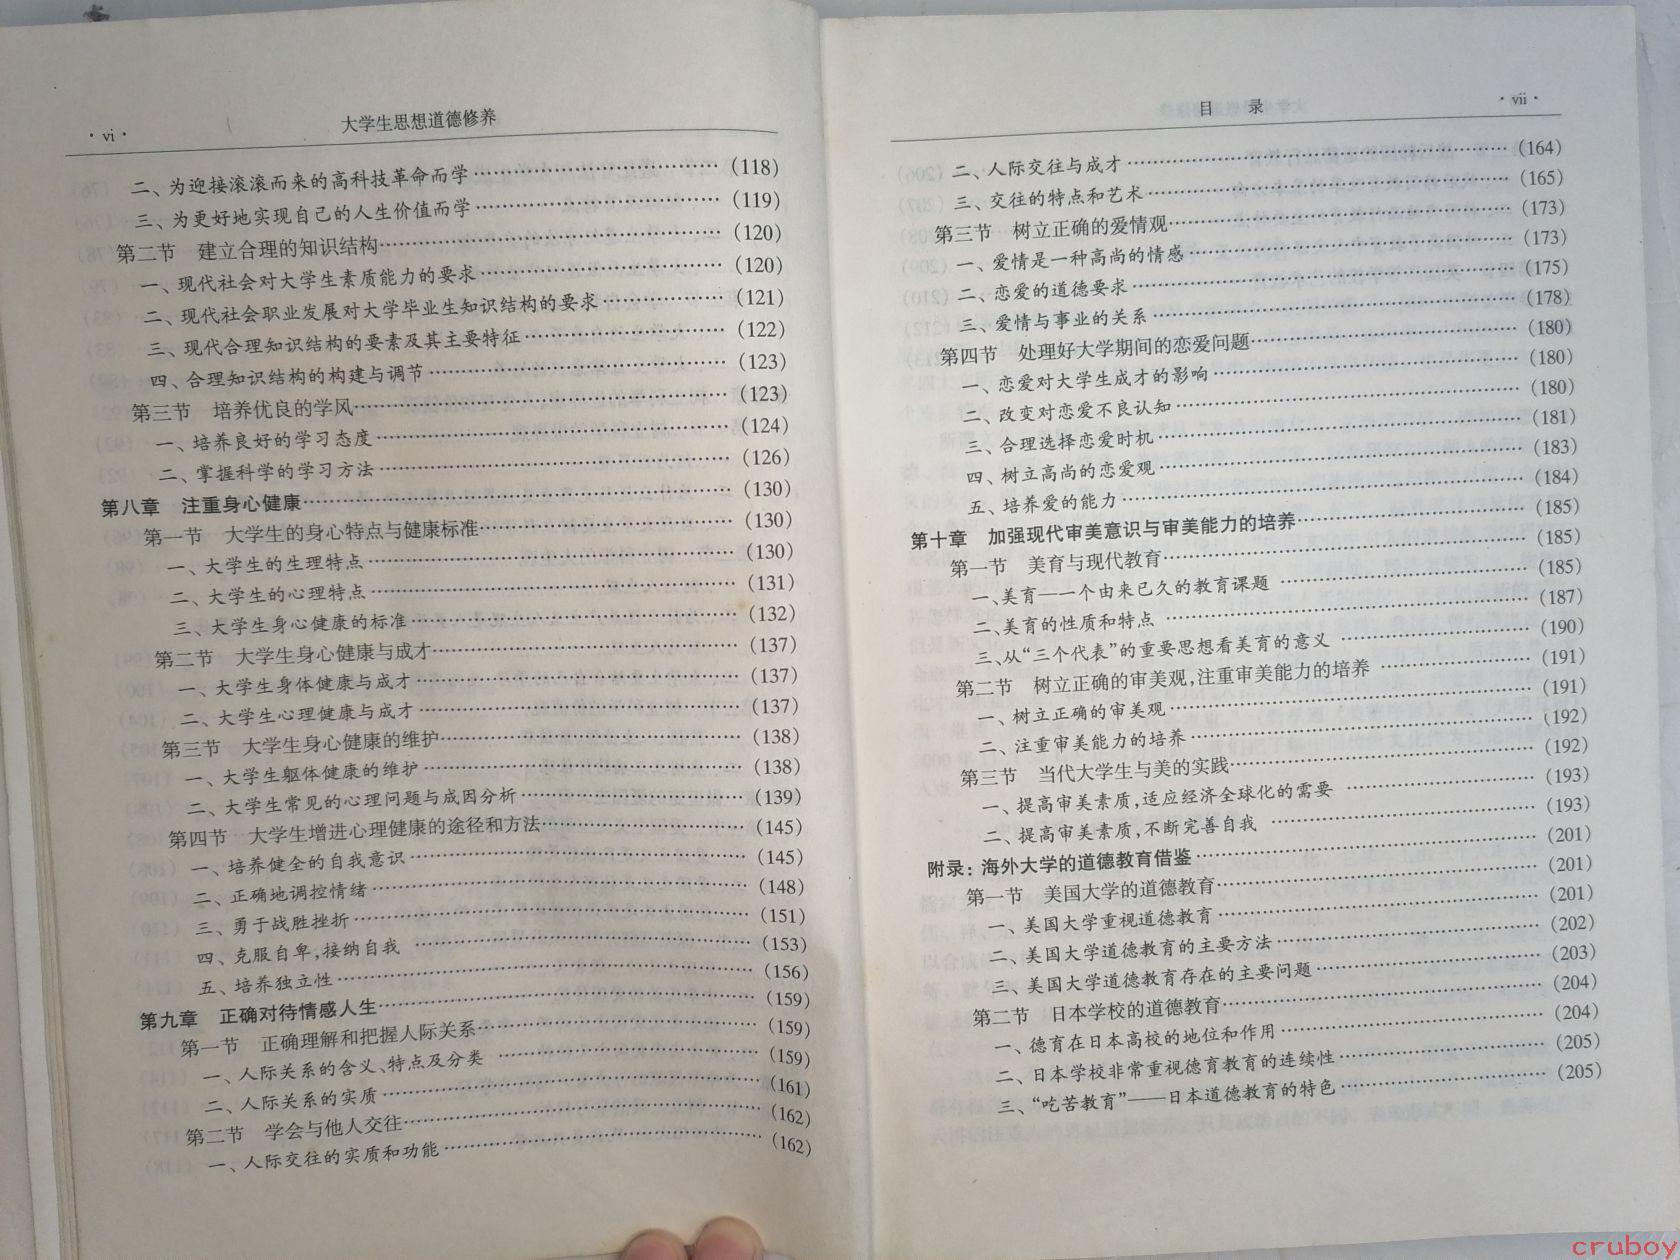 · vi ·
大学生思想道德修养
二、为迎接滚滚而来的高科技革命而学……(118)
三、为更好地实现自己的人生价值而学……(119)
第二节 建立合理的知识结构……(120)
一、现代社会对大学生素质能力的要求……(120)
二、现代社会职业发展对大学毕业生知识结构的要求……(121)
三、现代合理知识结构的要素及其主要特征……(122)
四、合理知识结构的构建与调节……(123)
第三节 培养优良的学风……(123)
一、培养良好的学习态度……(124)
二、掌握科学的学习方法……(126)
第八章 注重身心健康……(130)
第一节 大学生的身心特点与健康标准……(130)
一、大学生的生理特点……(130)
二、大学生的心理特点……(131)
三、大学生身心健康的标准……(132)
第二节 大学生身心健康与成才……(137)
一、大学生身体健康与成才……(137)
二、大学生心理健康与成才……(137)
第三节 大学生身心健康的维护……(138)
一、大学生躯体健康的维护……(138)
二、大学生常见的心理问题与成因分析……(139)
第四节 大学生增进心理健康的途径和方法……(145)
一、培养健全的自我意识……(145)
二、正确地调控情绪……(148)
三、勇于战胜挫折……(151)
四、克服自卑,接纳自我……(153)
五、培养独立性……(156)
第九章 正确对待情感人生……(159)
第一节 正确理解和把握人际关系……(159)
一、人际关系的含义、特点及分类……(159)
二、人际关系的实质……(161)
第二节 学会与他人交往……(162)
一、人际交往的实质和功能……(162)
目 录
· vii ·
二、人际交往与成才……(164)
三、交往的特点和艺术……(165)
第三节 树立正确的爱情观……(173)
一、爱情是一种高尚的情感……(173)
二、恋爱的道德要求……(175)
三、爱情与事业的关系……(178)
第四节 处理好大学期间的恋爱问题……(180)
一、恋爱对大学生成才的影响……(180)
二、改变对恋爱不良认知……(180)
三、合理选择恋爱时机……(181)
四、树立高尚的恋爱观……(183)
五、培养爱的能力……(184)
第十章 加强现代审美意识与审美能力的培养……(185)
第一节 美育与现代教育……(185)
一、美育—一个由来已久的教育课题……(185)
二、美育的性质和特点……(187)
三、从“三个代表”的重要思想看美育的意义……(190)
第二节 树立正确的审美观,注重审美能力的培养……(191)
一、树立正确的审美观……(191)
二、注重审美能力的培养……(192)
第三节 当代大学生与美的实践……(192)
一、提高审美素质,适应经济全球化的需要……(193)
二、提高审美素质,不断完善自我……(193)
附录：海外大学的道德教育借鉴……(201)
第一节 美国大学的道德教育……(201)
一、美国大学重视道德教育……(201)
二、美国大学道德教育的主要方法……(202)
三、美国大学道德教育存在的主要问题……(203)
第二节 日本学校的道德教育……(204)
一、德育在日本高校的地位和作用……(204)
二、日本学校非常重视德育教育的连续性……(205)
三、“吃苦教育”——日本道德教育的特色……(205)
cruboy